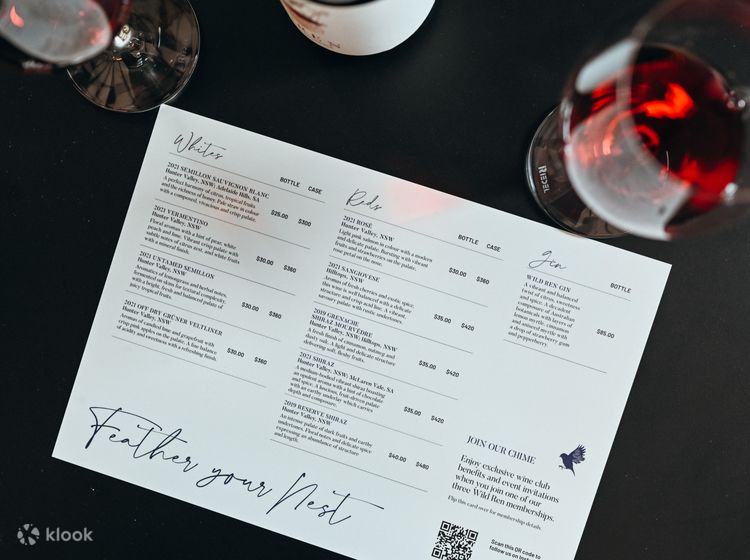 Whites
BOTTLE CASE
2021 SEMILLON SAUVIGNON BLANC
Hunter Valley, NSW; Adelaide Hills, SA
A perfect harmony of citrus, tropical fruits
and the richness of honey. Pale straw in colour
with a composed, vivacious and crisp palate.
$25.00 $300
2021 VERMENTINO
Hunter Valley, NSW
Floral aromas with a hint of pear, white
peach and lime. Vibrant crisp palate with
subtle notes of citrus zest, and white fruits
with a mineral finish.
$30.00 $360
2021 UNTAMED SEMILLON
Hunter Valley, NSW
Aromatics of lemongrass and herbal notes,
fermented on skins for textural complexity,
with a bright, fresh and balanced palate of
juicy tropical fruits.
$30.00 $360
2021 OFF DRY GRUNER VELTLINER
Hunter Valley, NSW
Aromas of candied lime and grapefruit with
crisp pink apples on the palate. A fine balance
of acidity and sweetness with a refreshing finish.
$30.00 $360
Reds
BOTTLE CASE
2021 ROSÉ
Hunter Valley, NSW
Light pink salmon in colour with a modern
and delicate palate. Bursting with vibrant
fruits and strawberries on the palate.
rose petal on the nose.
$30.00 $360
2021 SANGIOVESE
Hilltops, NSW
Aromas of fresh cherries and exotic spice,
this wine is well balanced with a delicate
structure and crisp acid line. A vibrant
savoury palate with rustic undertones.
$35.00 $420
2019 GRENACHE
SHIRAZ MOURVÈDRE
Hunter Valley, NSW; Hilltops, NSW
A fresh finish of cinnamon, nutmeg and
dusty oak. A light and delicate structure
delivering soft, fleshy fruits.
$35.00 $420
2021 SHIRAZ
Hunter Valley, NSW; McLaren Vale, SA
A medium-bodied vibrant shiraz boasting
an opulent aroma with a hint of chocolate
and spice. A luscious, fruit-driven palate
with an earthy underlay which carries
depth and structure.
$35.00 $420
2019 RESERVE SHIRAZ
Hunter Valley, NSW
An intense palate of dark fruits and earthy
undertones. Floral notes and delicate spice
expressing an abundance of structure
and length.
$40.00 $480
Gin
BOTTLE
WILD REN GIN
A vibrant and balanced
twist of citrus, sweetness
and spice. A decadent
composure of Australian
botanicals with layers of
lemon myrtle, cinnamon
and aniseed myrtle with
a drop of strawberry gum
and pepperberry.
$85.00
Feather your Nest
JOIN OUR CHIME
Enjoy exclusive wine club
benefits and event invitations
when you join one of our
three Wild Ren memberships.
Flip this card over for membership details.
Scan this QR code to
follow us on
RIEDEL
klook